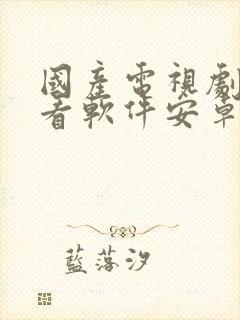 國產電視劇
看軟件安卓
藍落汐